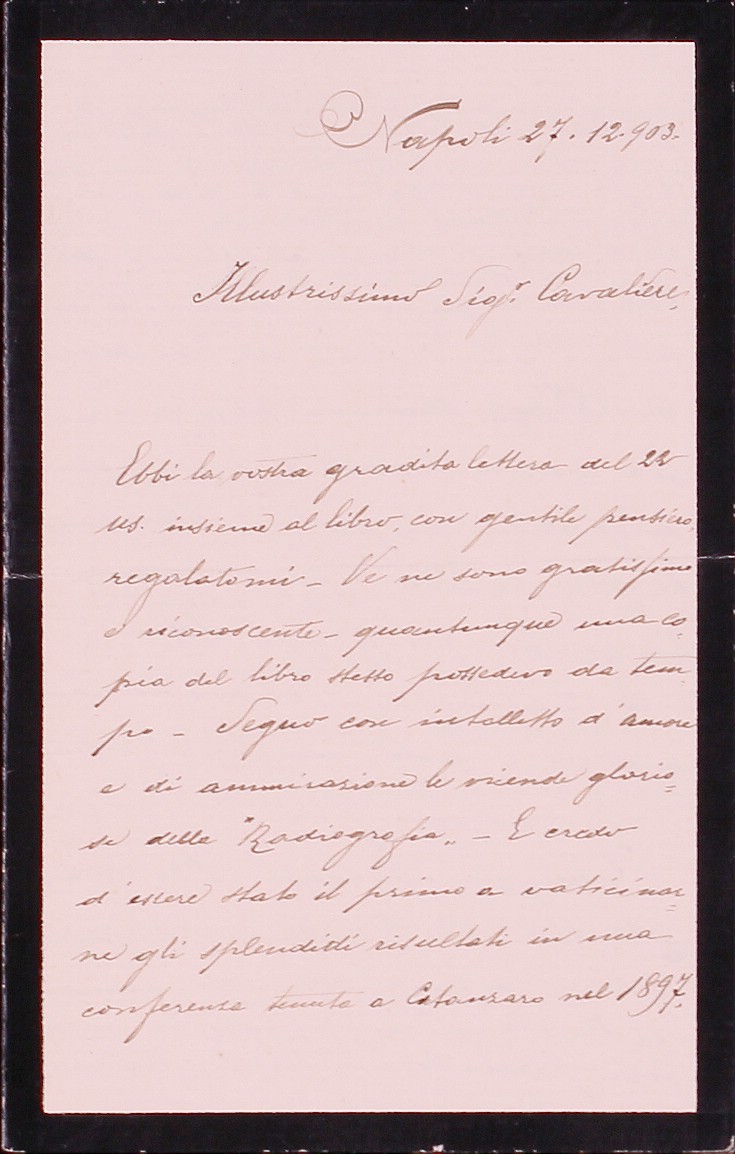 Napoli 27. 12. 903.
Illustrissimo Sigr. Cavaliere,
Ebbi la vostra gradita lettera del 22
us. insieme al libro, con gentile pensiero,
regalatomi - Ve ne sono gratissimo
e riconoscente - quantunque una co-
pia del libro stesso possedevo da tem-
po - Seguo con intelletto d'amore
e di ammirazione le vicende glorio=
se della "Radiografia„ - E credo
d'essere stato il primo a vaticinar=
ne gli splendidi risultati in una
conferenza tenuta a Catanzaro nel 1897.